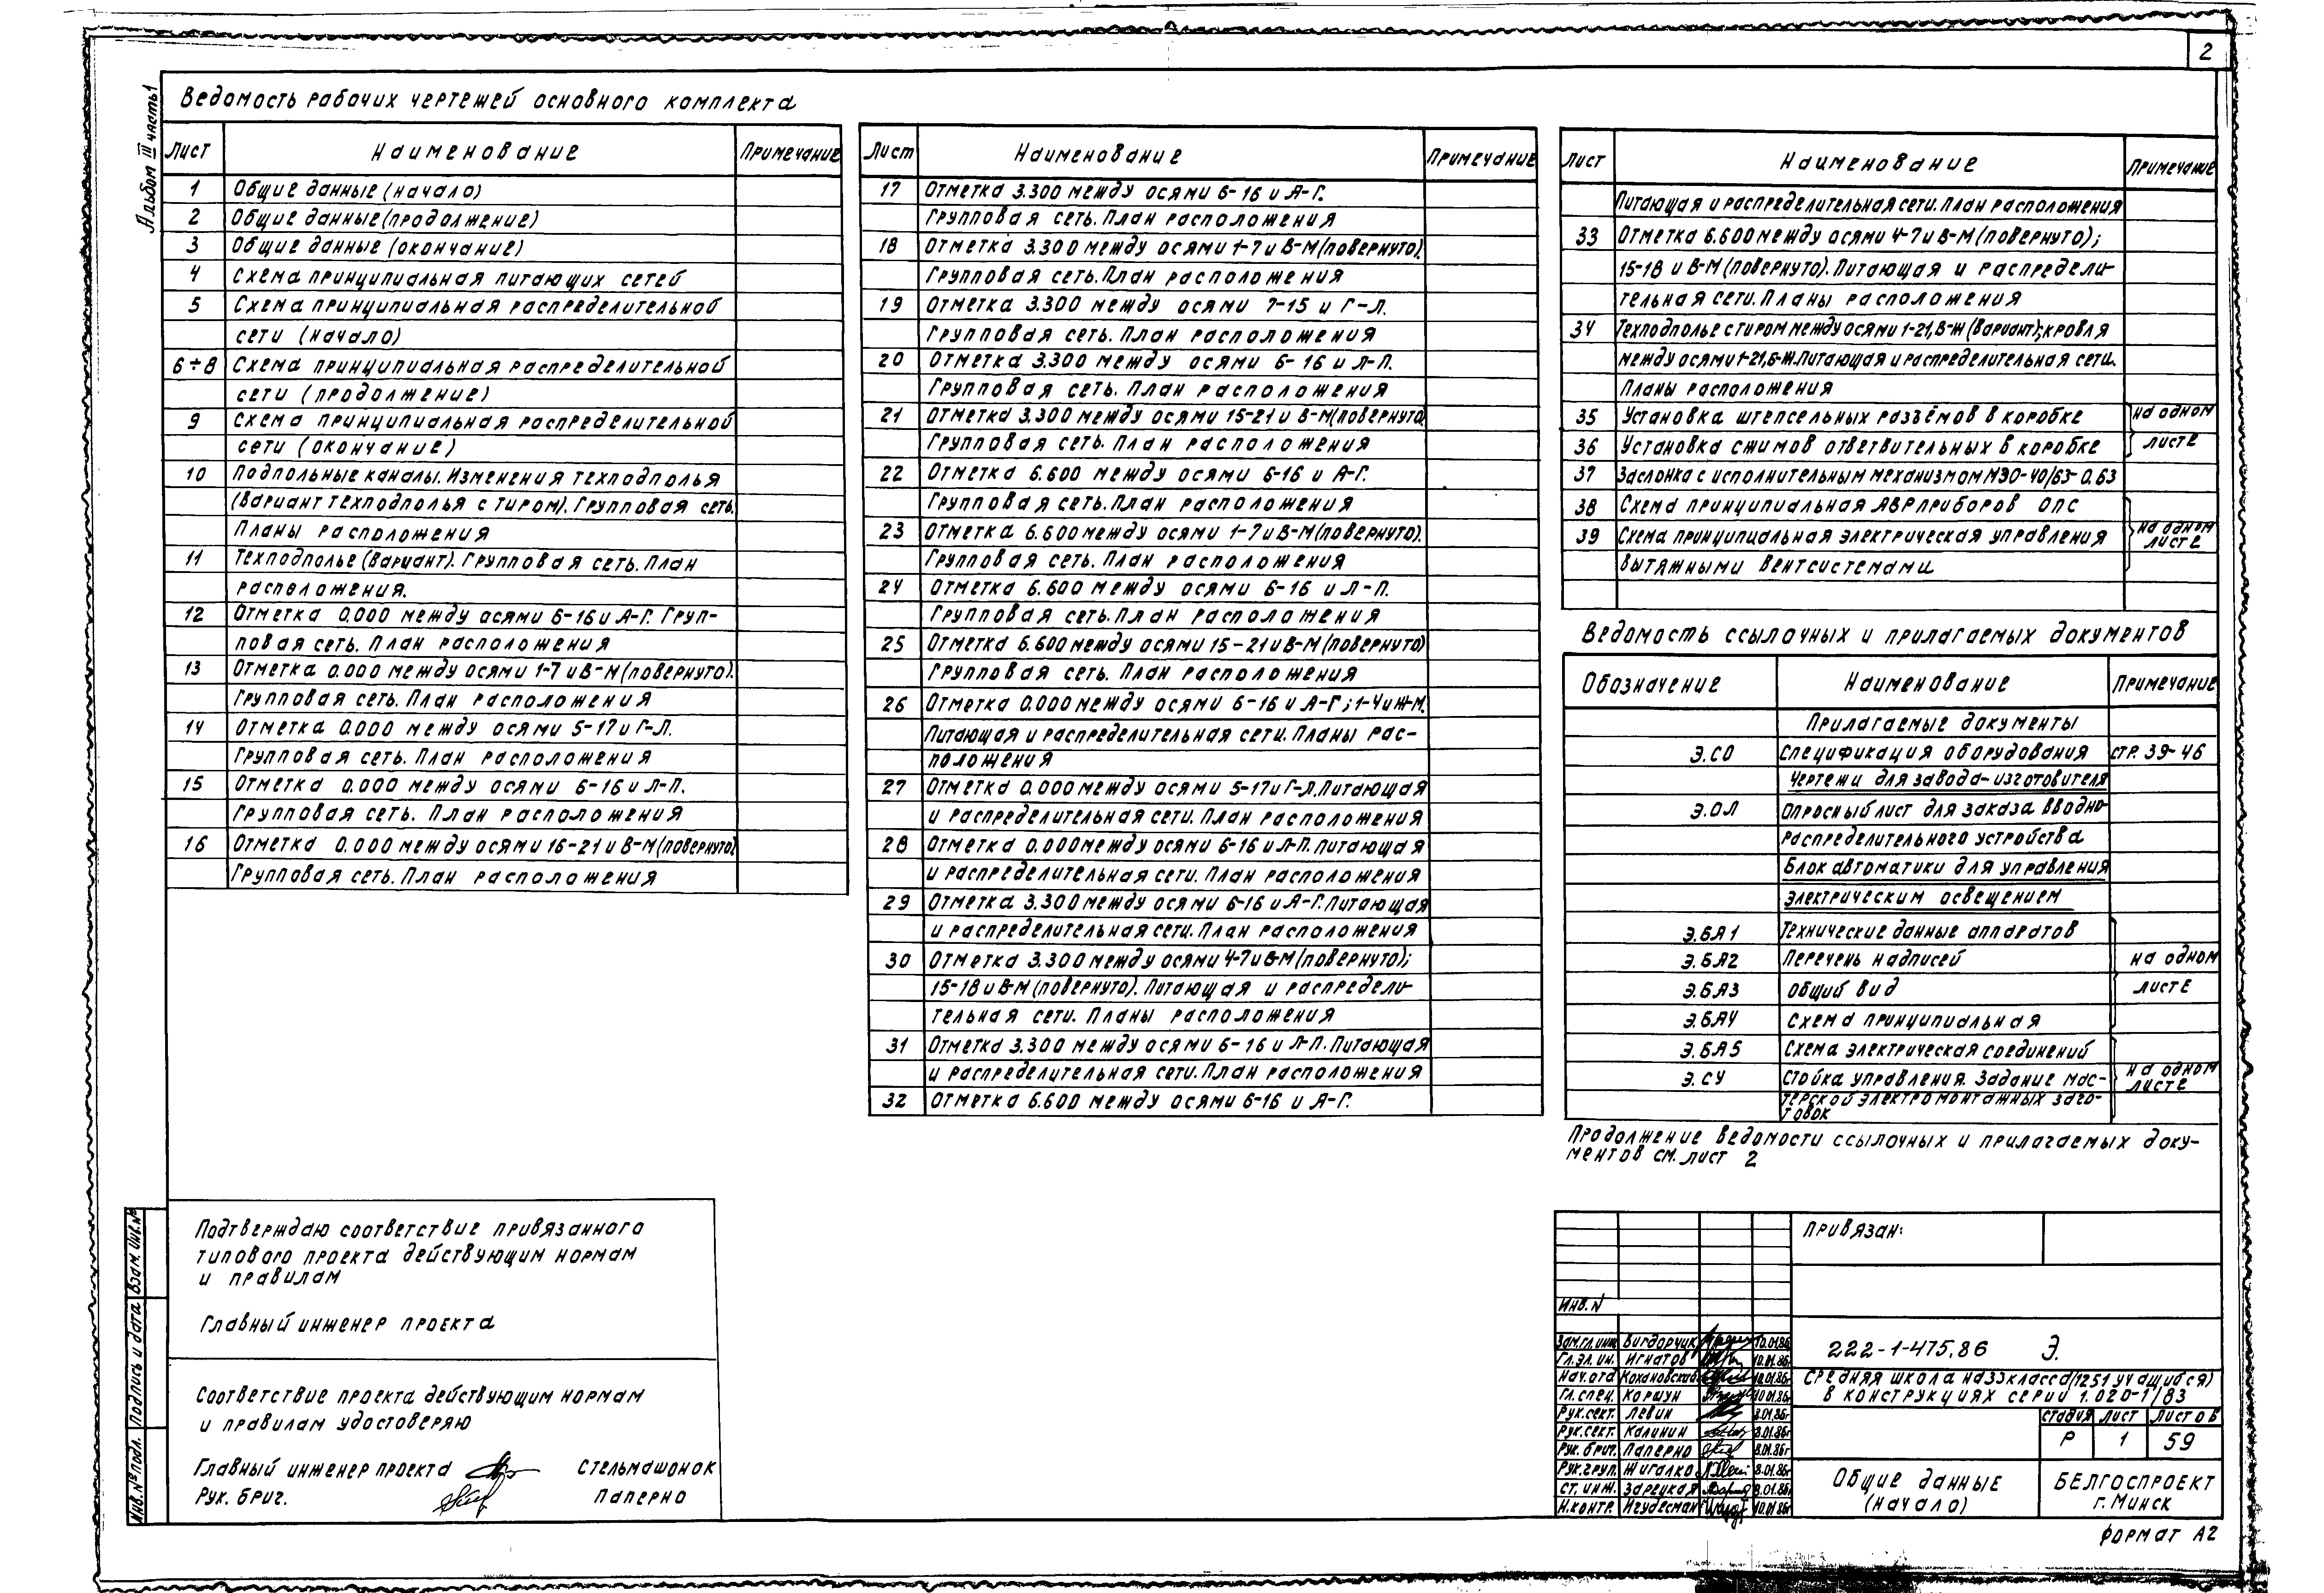 2
Альбом III часть 1
Ведомость рабочих чертежей основного комплекта
Лист Наименование Примечание
1 Общие данные (начало)
2 Общие данные (продолжение)
3 Общие данные (окончание)
4 Схема принципиальная питающих сетей
5 Схема принципиальная распределительной
сети (начало)
6÷8 Схема принципиальная распределительной
сети (продолжение)
9 Схема принципиальная распределительной
сети (окончание)
10 Подпольные каналы. Изменения техподполья
(вариант техподполья с тиром). Групповая сеть.
Планы расположения
11 Техподполье (вариант). Групповая сеть. План
расположения.
12 Отметка 0.000 между осями 6-16 и А-Г. Груп-
повая сеть. План расположения
13 Отметка 0.000 между осями 1-7 и В-М (повернуто).
Групповая сеть. План расположения
14 Отметка 0.000 между осями 5-17 и Г-Л.
Групповая сеть. План расположения
15 Отметка 0.000 между осями 6-16 и Л-П.
Групповая сеть. План расположения
16 Отметка 0.000 между осями 16-21 и В-М (повернуто)
Групповая сеть. План расположения
Лист Наименование Примечание
17 Отметка 3.300 между осями 6-16 и А-Г.
Групповая сеть. План расположения
18 Отметка 3.300 между осями 1-7 и В-М (повернуто).
Групповая сеть. План расположения
19 Отметка 3.300 между осями 7-15 и Г-Л.
Групповая сеть. План расположения
20 Отметка 3.300 между осями 6-16 и Л-П.
Групповая сеть. План расположения
21 Отметка 3.300 между осями 15-21 и В-М (повернуто
Групповая сеть. План расположения
22 Отметка 6.600 между осями 6-16 и А-Г.
Групповая сеть. План расположения
23 Отметка 6.600 между осями 1-7 и В-М (повернуто).
Групповая сеть. План расположения
24 Отметка 6.600 между осями 6-16 и Л-П.
Групповая сеть. План расположения
25 Отметка 6.600 между осями 15-21 и В-М (повернуто)
Групповая сеть. План расположения
26 Отметка 0.000 между осями 6-16 и А-Г; 1-4 и Ж-М.
Питающая и распределительная сети. Планы рас-
положения
27 Отметка 0.000 между осями 5-17 и Г-Л. Питающая
и распределительная сети. План расположения
28 Отметка 0.000 между осями 6-16 и Л-П. Питающая
и распределительная сети. План расположения
29 Отметка 3.300 между осями 6-16 и А-Г. Питающая
и распределительная сети. План расположения
30 Отметка 3.300 между осями 4-7 и В-М (повернуто);
15-18 и В-М (повернуто). Питающая и распредели-
тельная сети. Планы расположения
31 Отметка 3.300 между осями 6-16 и Л-П. Питающая
и распределительная сети. План расположения
32 Отметка 6.600 между осями 6-16 и А-Г.
Лист Наименование Примечание
Питающая и распределительная сети. План расположения
33 Отметка 6.600 между осями 4-7 и В-М (повернуто);
15-18 и В-М (повернуто). Питающая и распредели-
тельная сети. Планы расположения
34 Техподполье с тиром между осями 1-21, В-Ж (вариант); кровля
между осями 1-21, Б-Ж. Питающая и распределительная сети.
Планы расположения
35 Установка штепсельных разъёмов в коробке на одном
36 Установка сжимов ответвительных в коробке листе
37 Заслонка с исполнительным механизмом МЭО-40/63-0.63
38 Схема принципиальная АВР приборов ОПС
39 Схема принципиальная электрическая управления на одном листе
вытяжными вентсистемами
Ведомость ссылочных и прилагаемых документов
Обозначение Наименование Примечание
Прилагаемые документы
Э.СО Спецификация оборудования стр. 39-46
Чертежи для завода-изготовителя
Э.ОЛ Опросный лист для заказа вводно-
распределительного устройства
Блок автоматики для управления
электрическим освещением
Э.БА1 Технические данные аппаратов
Э.БА2 Перечень надписей на одном
Э.БА3 Общий вид листе
Э.БА4 Схема принципиальная
Э.БА5 Схема электрическая соединений
Э.СУ Стойка управления. Задание мас- на одном листе
терской электромонтажных заго-
товок
Продолжение ведомости ссылочных и прилагаемых доку-
ментов см. лист 2
Подтверждаю соответствие привязанного
типового проекта действующим нормам
и правилам
Главный инженер проекта
Соответствие проекта действующим нормам
и правилам удостоверяю
Главный инженер проекта Стельмашонок
Рук. бриг. Паперно
Инв. № подл. Подпись и дата Взам. инв. №
Привязан:
Инв. N
Зам.гл.инж. Вигдорчик 10.01.86
Гл.эл.ин. Игнатов 10.01.86г
Нач.отд Кохановский 10.01.86г
Гл.спец. Коршун 10.01.86г
Рук.сект. Левин 8.01.86г
Рук.сект. Калинин 8.01.86г
Рук.бриг. Паперно 8.01.86г
Рук.груп. Жигалко 8.01.86г
Ст.инж. Зарецкая 8.01.86г
Н.контр. Игудесман 10.01.86г
222-1-475.86 Э.
Средняя школа на 33 класса (1251 учащийся)
в конструкциях серии 1.020-1/83
Стадия Лист Листов
Р 1 59
Общие данные
(начало)
БЕЛГОСПРОЕКТ
г. Минск
Формат А2